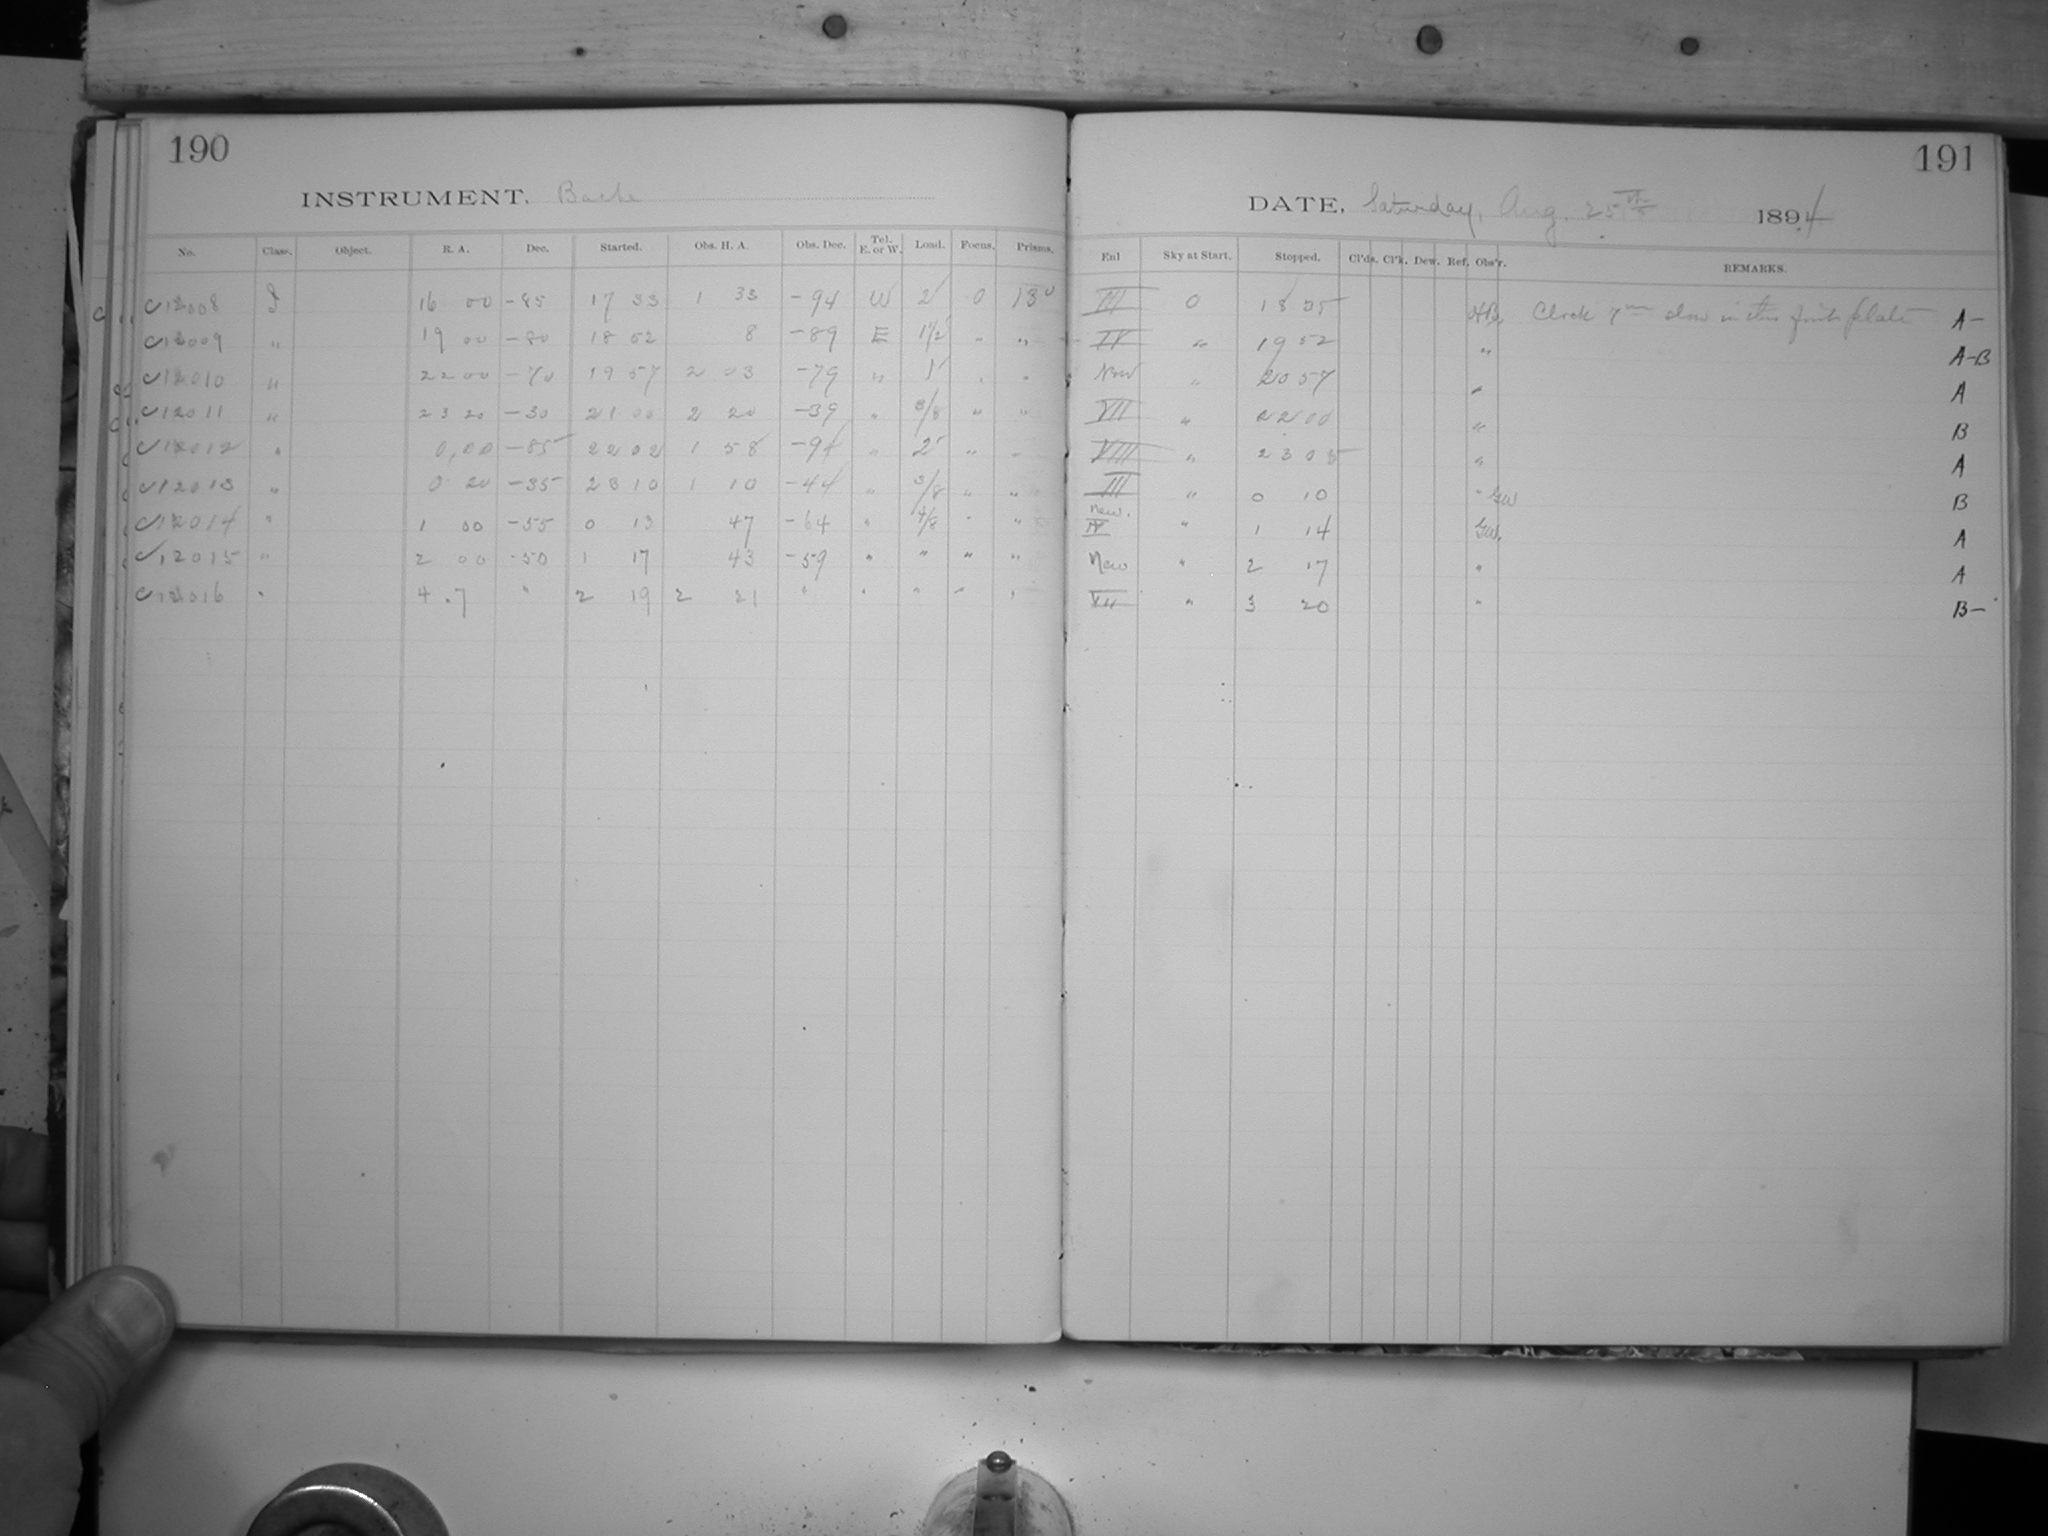 190
INSTRUMENT. Bache
No. Class. Object. R. A. Dec. Started. Obs. H. A. Obs. Dec. Tel. E. or W. Load. Focus. Prisms.
12008 16 00 -85 17 33 1 33 -94 W 2 0 130
12009 " 19 00 -80 18 52 8 -89 E 1 1/2 " "
12010 " 22 00 -70 19 57 2 03 -79 " 1 " "
12011 " 23 20 -30 21 00 2 20 -39 " 3/8 " "
12012 " 0,00 -85 22 02 1 58 -94 " 2 " "
12013 " 0 20 -35 23 10 1 10 -44 " 3/8 " "
12014 " 1 00 -55 0 13 47 -64 " 4/8 " "
12015 " 2 00 -50 1 17 43 -59 " " " "
12016 " 4.7 " 2 19 2 21 " " " " "
191
DATE. Saturday, Aug. 25th 1894
Enl Sky at Start. Stopped. Cl'ds. Cl'k. Dew. Ref. Obs'r. REMARKS.
III 0 18 35 Clock 7m slow in this first plate A-
IV " 19 52 " A-B
New " 20 57 " A
VII " 22 00 " B
VIII " 23 05 " A
III " 0 10 " GW B
New. IV " 1 14 GW. A
New " 2 17 " A
VII " 3 20 " B-